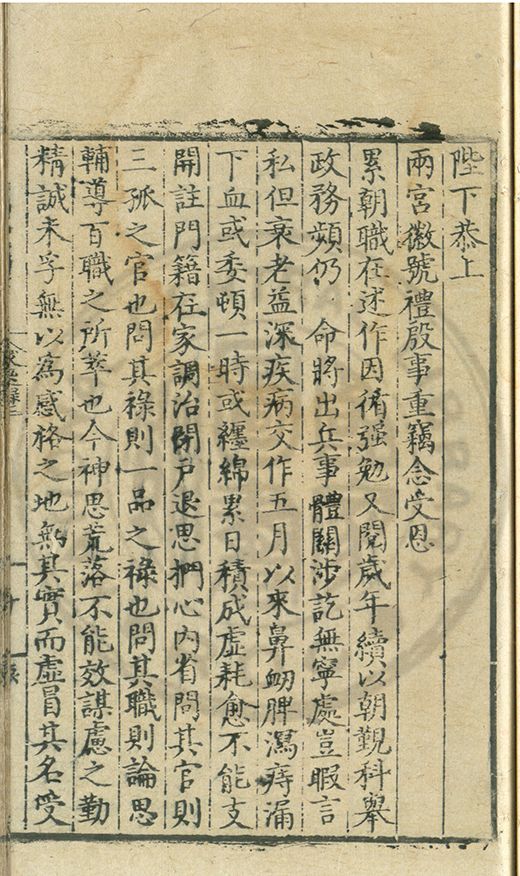 陛下恭上
兩宮徽號禮殷事重竊念受恩
累朝職在述作因循强勉又閱歲年續以朝覲科舉
政務頻仍 命將出兵事體關涉訖無寧處豈暇言
私但衰老益深疾病交作五月以來鼻衂脾瀉痔漏
下血或委頓一時或纏綿累日積成虛耗愈不能支
開註門籍在家調治閉户退思捫心内省問其官則
三孤之官也問其祿則一品之祿也問其職則論思
輔導百職之所萃也今神思荒落不能效謀慮之勤
精誠未孚無以爲感格之地無其實而虛冒其名受